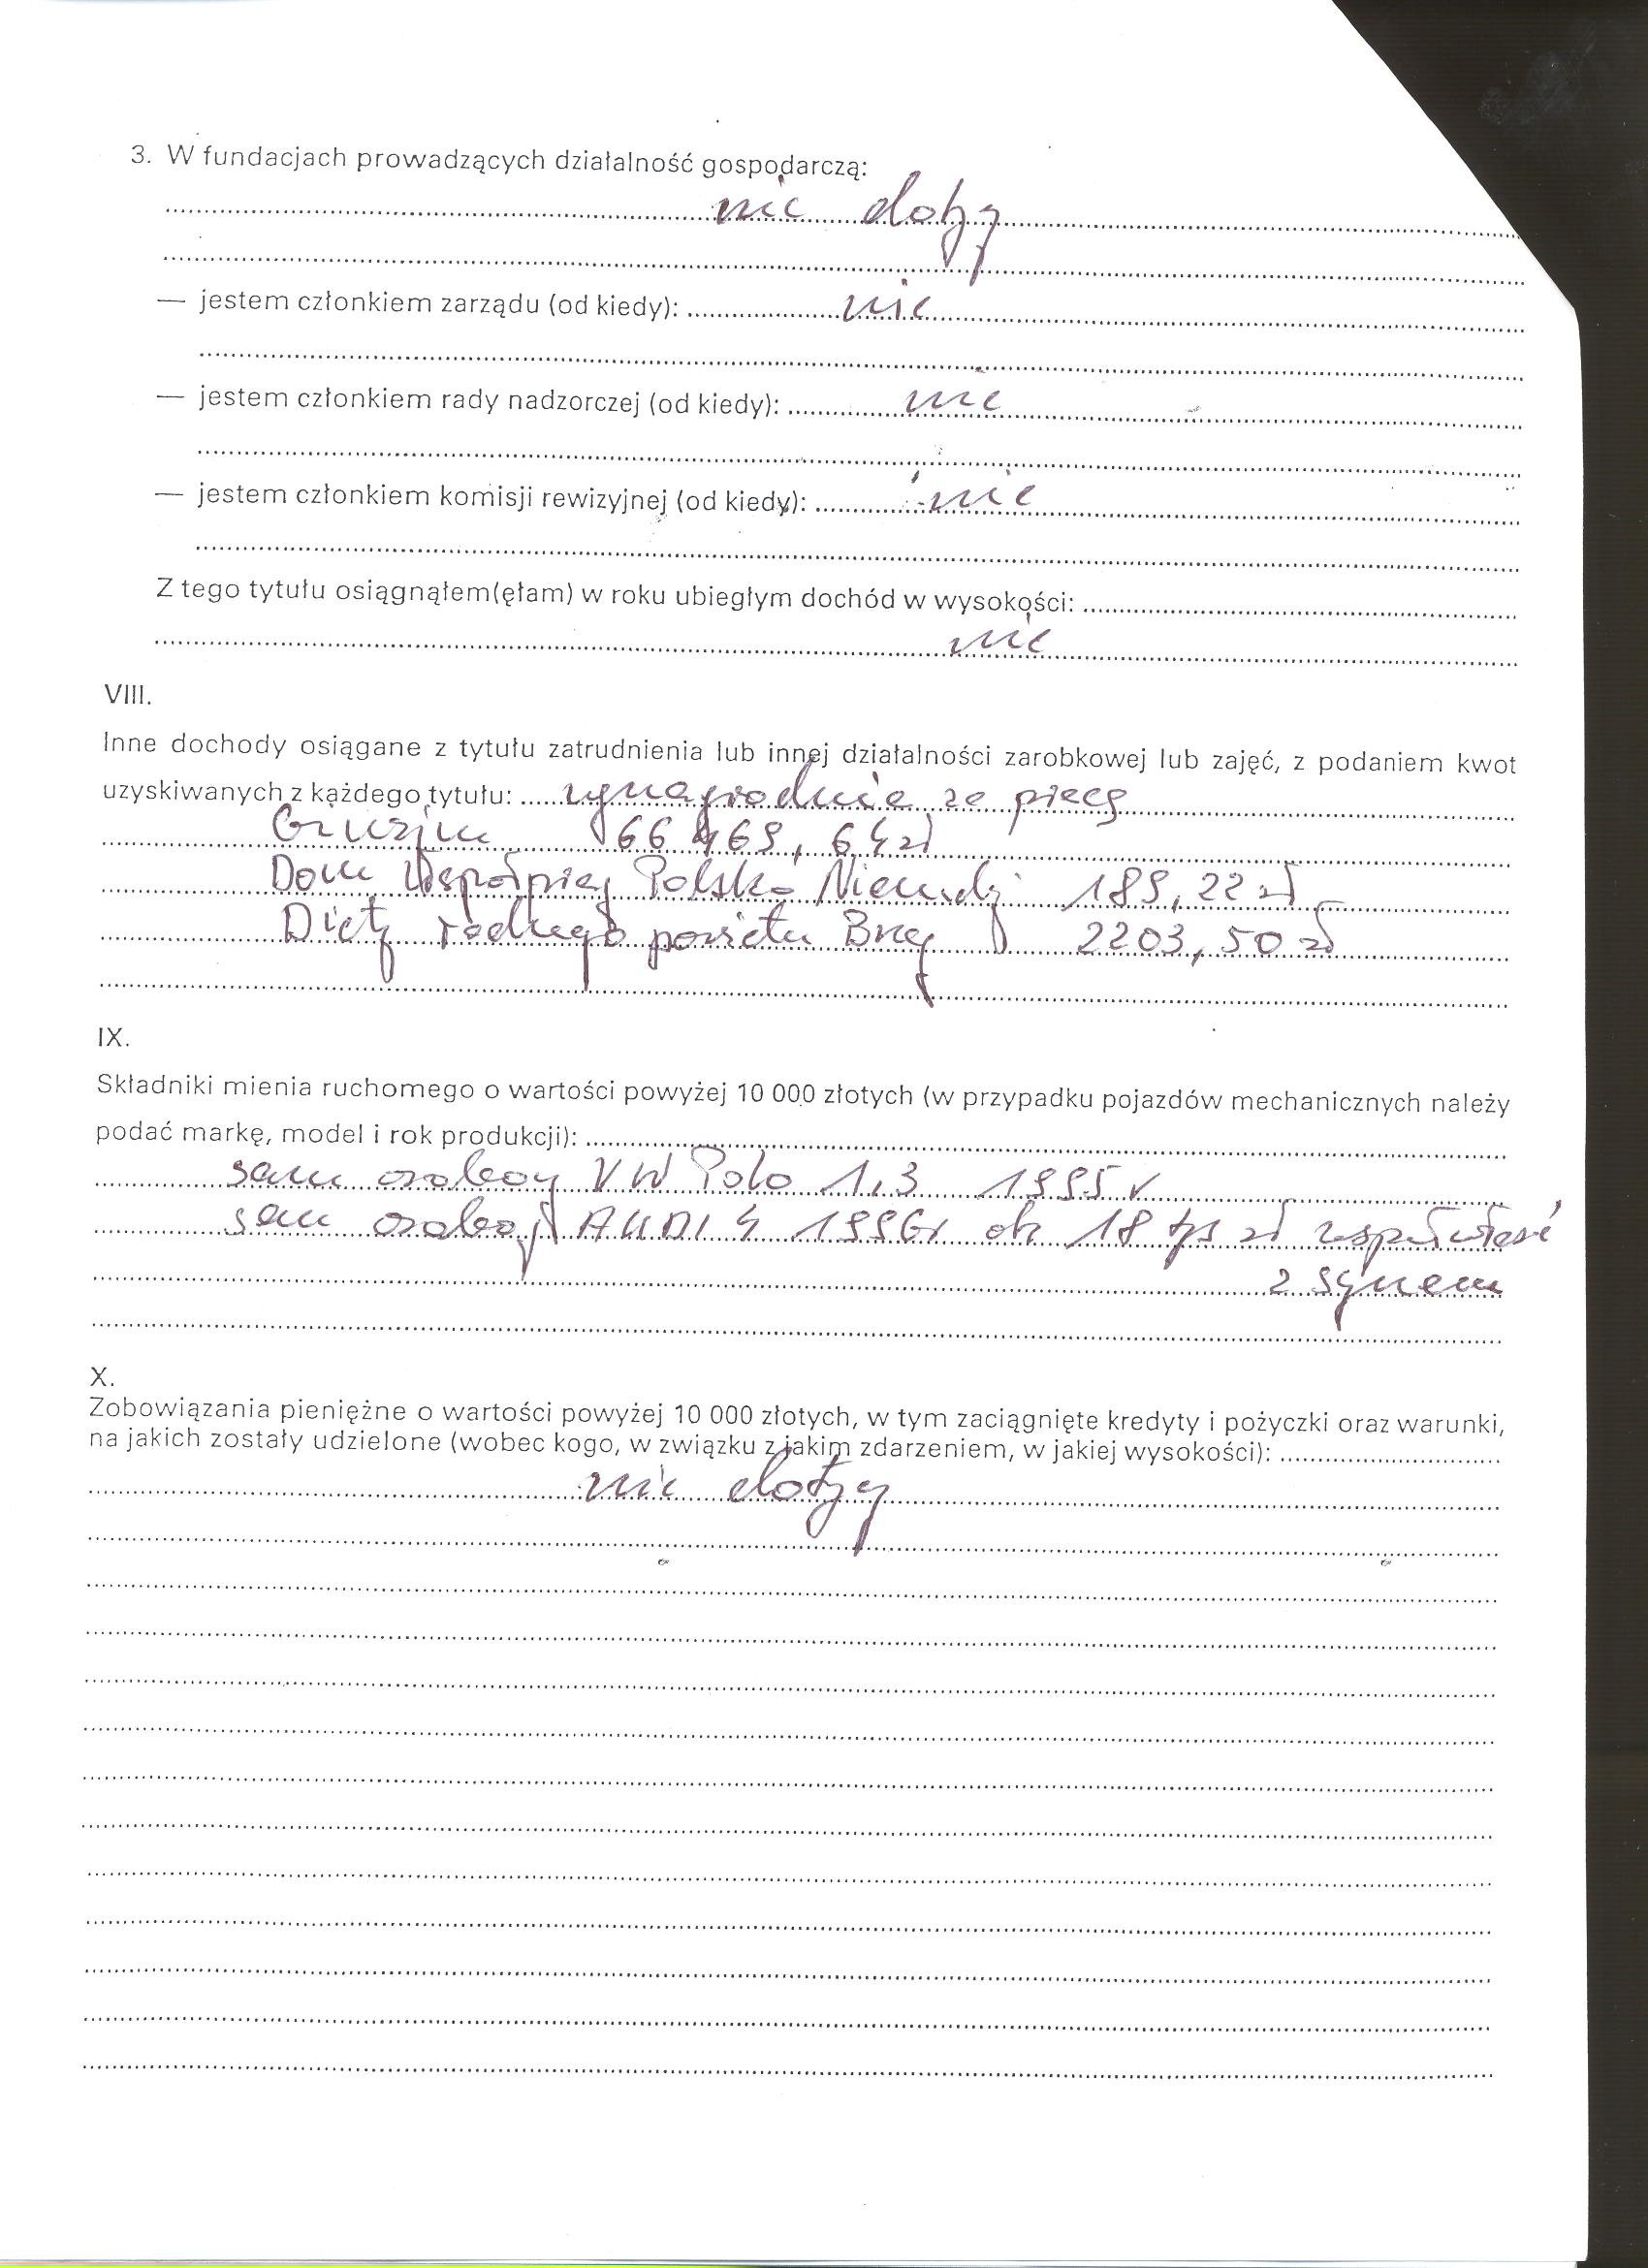 3. W fundacjach prowadzących działalność gospodarczą:
nie dotyczy
— jestem członkiem zarządu (od kiedy): nie
— jestem członkiem rady nadzorczej (od kiedy): nie
— jestem członkiem komisji rewizyjnej (od kiedy): nie
Z tego tytułu osiągnąłem(ęłam) w roku ubiegłym dochód w wysokości:
nie
VIII.
Inne dochody osiągane z tytułu zatrudnienia lub innej działalności zarobkowej lub zajęć, z podaniem kwot
uzyskiwanych z każdego tytułu: wynagrodzenie za pracę
66 469, 64 zł
Dom Współpracy Polsko Niemieckiej 189,22 zł
Diety radnego powiatu Brzeg 2203,50 zł
IX.
Składniki mienia ruchomego o wartości powyżej 10 000 złotych (w przypadku pojazdów mechanicznych należy
podać markę, model i rok produkcji):
sam osobowy VW Polo 1,3 1995 r
sam osobowy AUDI 4 1996r ok 18 tys zł współwłasność
z synem
X.
Zobowiązania pieniężne o wartości powyżej 10 000 złotych, w tym zaciągnięte kredyty i pożyczki oraz warunki,
na jakich zostały udzielone (wobec kogo, w związku z jakim zdarzeniem, w jakiej wysokości):
nie dotyczy